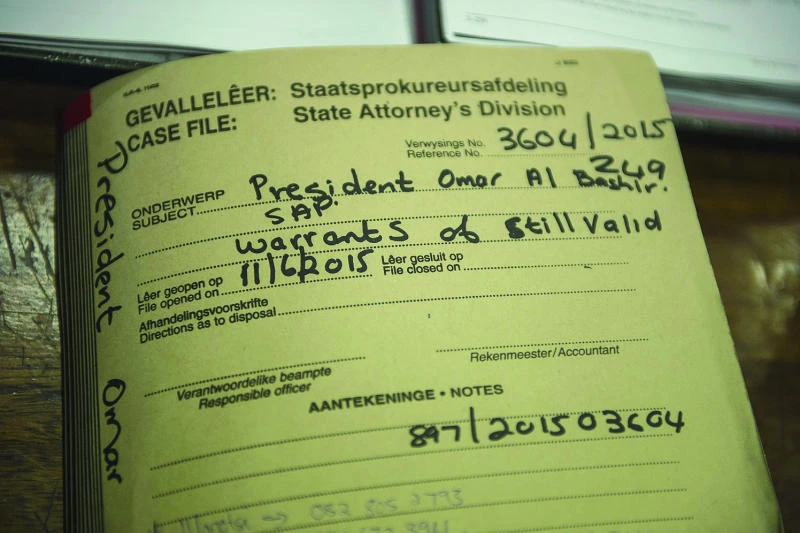 GEVALLELÊER: Staatsprokureursafdeling
CASE FILE: State Attorney's Division
Verwysings No.
Reference No. 3604/2015
249
ONDERWERP
SUBJECT President Omar Al Bashir.
SAP.
warrants of still Valid
Lêer geopen op
File opened on 11/6/2015
Lêer gesluit op
File closed on
Afhandelingsvoorskrifte
Directions as to disposal
Verantwoordelike beampte
Responsible officer
Rekenmeester/Accountant
AANTEKENINGE • NOTES
897/201503604
082 805 2793
President Omar